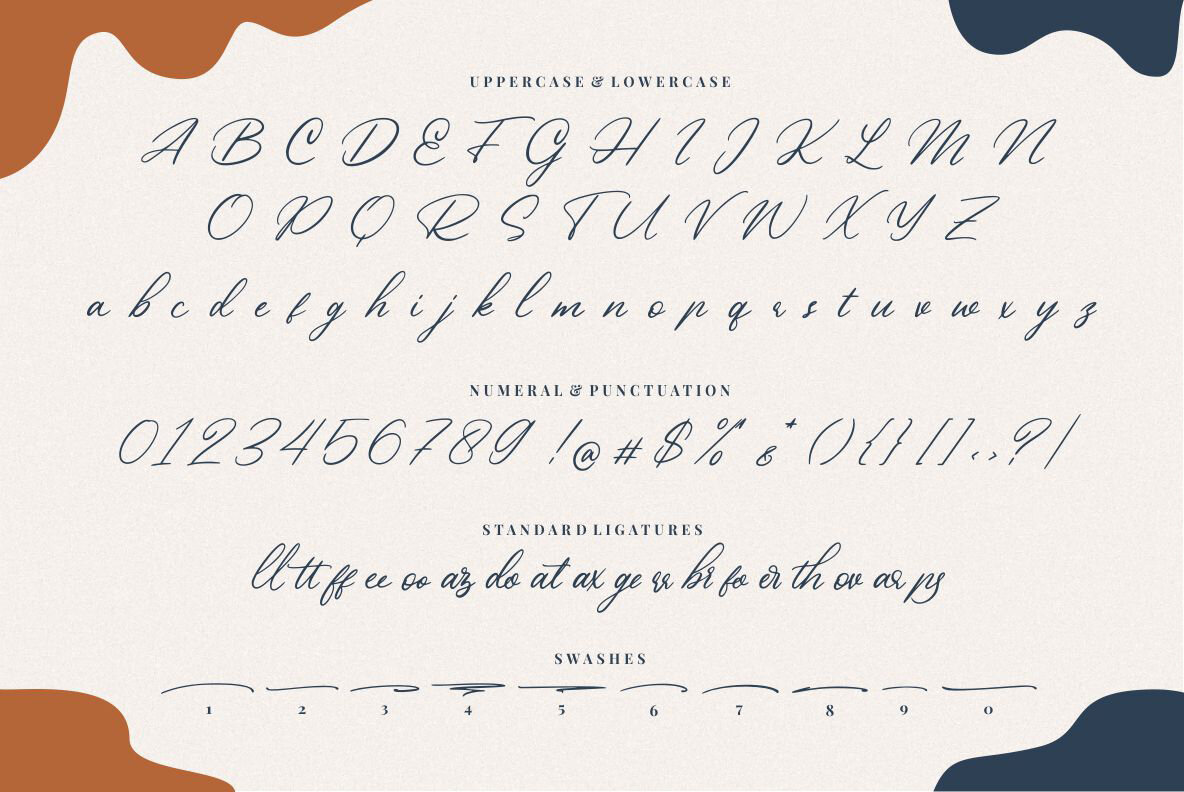 UPPERCASE & LOWERCASE
A B C D E F G H I J K L M N
O P Q R S T U V W X Y Z
a b c d e f g h i j k l m n o p q r s t u v w x y z
NUMERAL & PUNCTUATION
0 1 2 3 4 5 6 7 8 9 ! @ # $ % & * ( ) { } [ ] < > ? /
STANDARD LIGATURES
ll tt ff ee oo az do at ax ge rr br fo er th ov ar ps
SWASHES
1 2 3 4 5 6 7 8 9 0